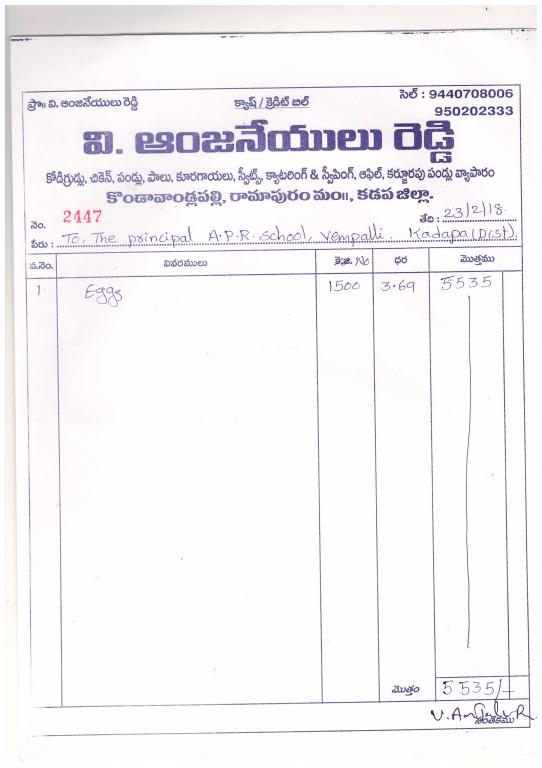 ప్రొ॥ వి. ఆంజనేయులు రెడ్డి క్యాష్ / క్రెడిట్ బిల్ సెల్ : 9440708006
950202333
వి. ఆంజనేయులు రెడ్డి
కోడిగ్రుడ్లు, చికెన్, పండ్లు, పాలు, కూరగాయలు, స్వీట్స్, క్యాటరింగ్ & స్వీపింగ్, ఆఫిల్, కర్జూరపు పండ్లు వ్యాపారం
కొండావాండ్లపల్లి, రామాపురం మం॥, కడప జిల్లా.
నెం. 2447 తేది : 23/2/18.
పేరు : To, The principal A.P.R. school, Vempalli. Kadapa (Dist).
వ.నెం. వివరములు కె.జి. No ధర మొత్తము
1 Eggs 1500 3.69 5535
మొత్తం 5535/-
సంతకము